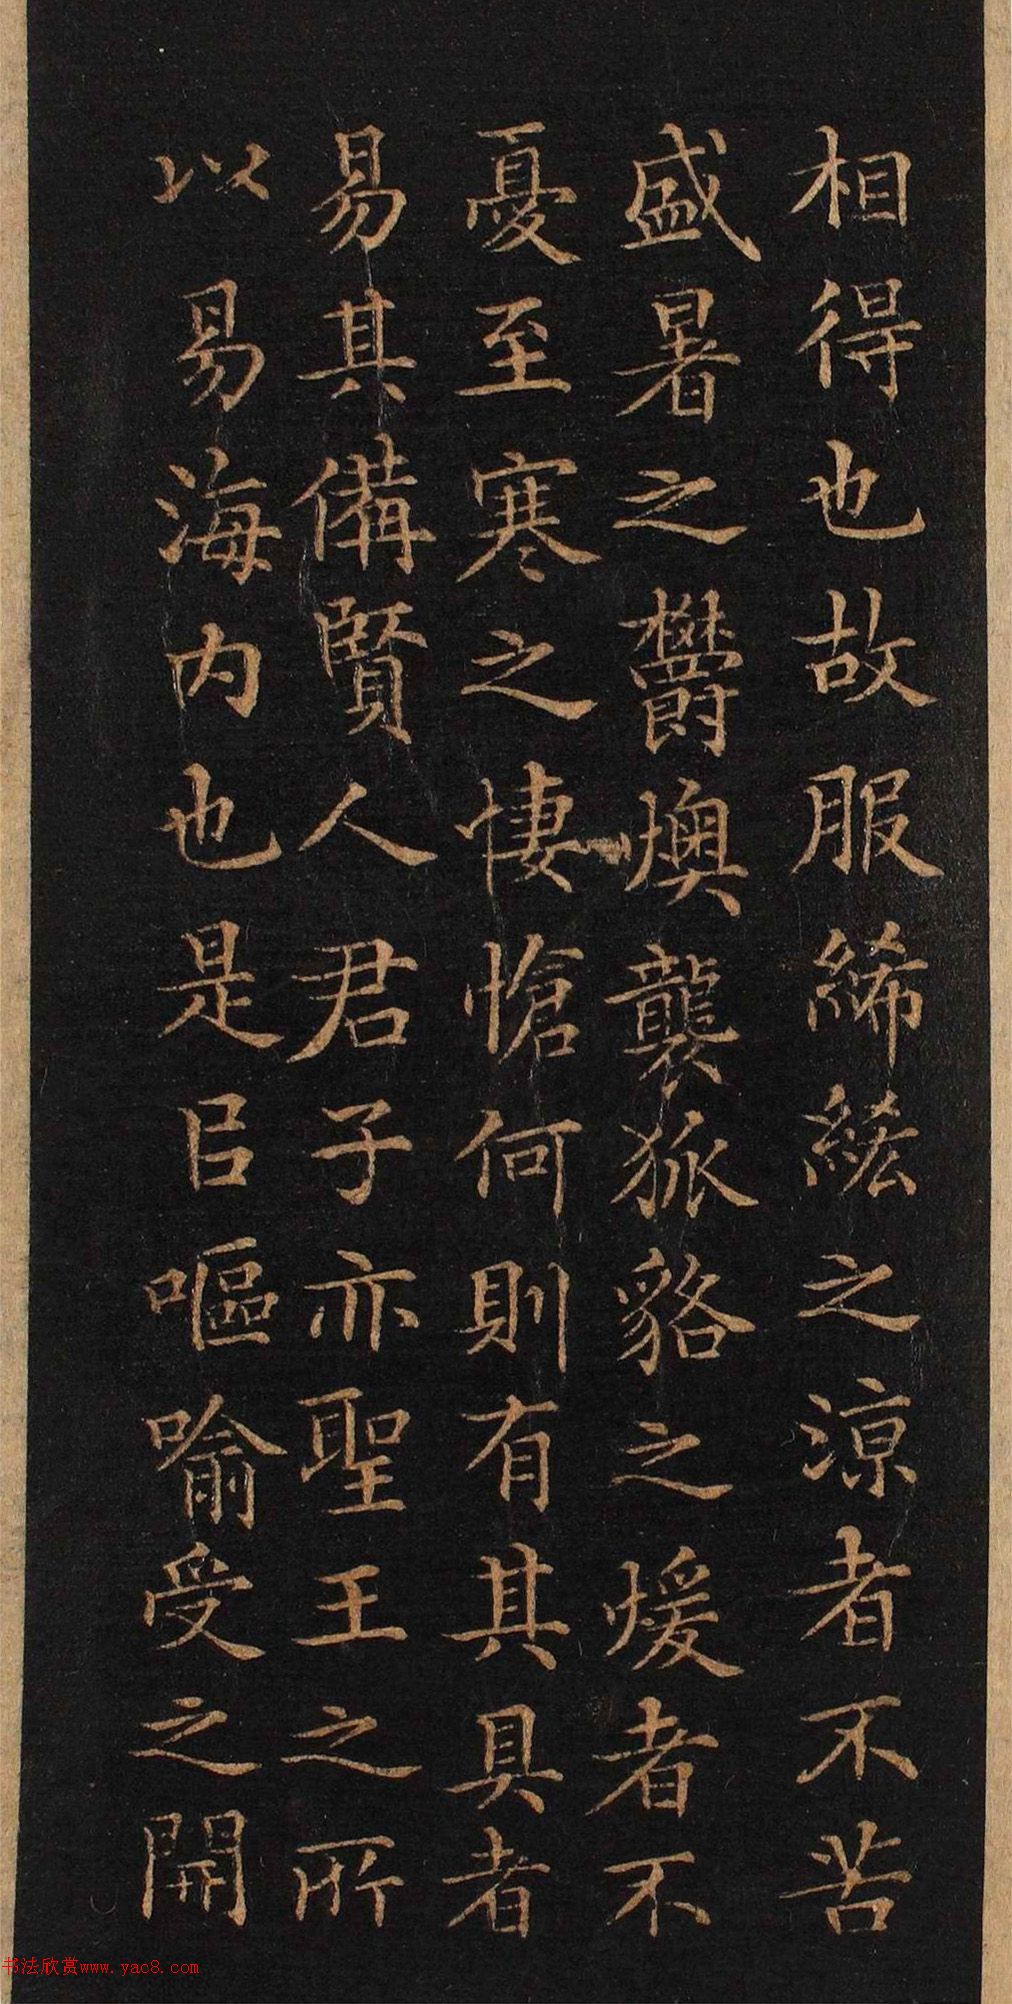 相得也故服絺綌之涼者不苦
盛暑之鬱燠襲狐貉之煖者不
憂至寒之悽愴何則有其具者
易其備賢人君子亦聖王之所
以易海内也是以嘔喻受之開
书法欣赏www.yac8.com